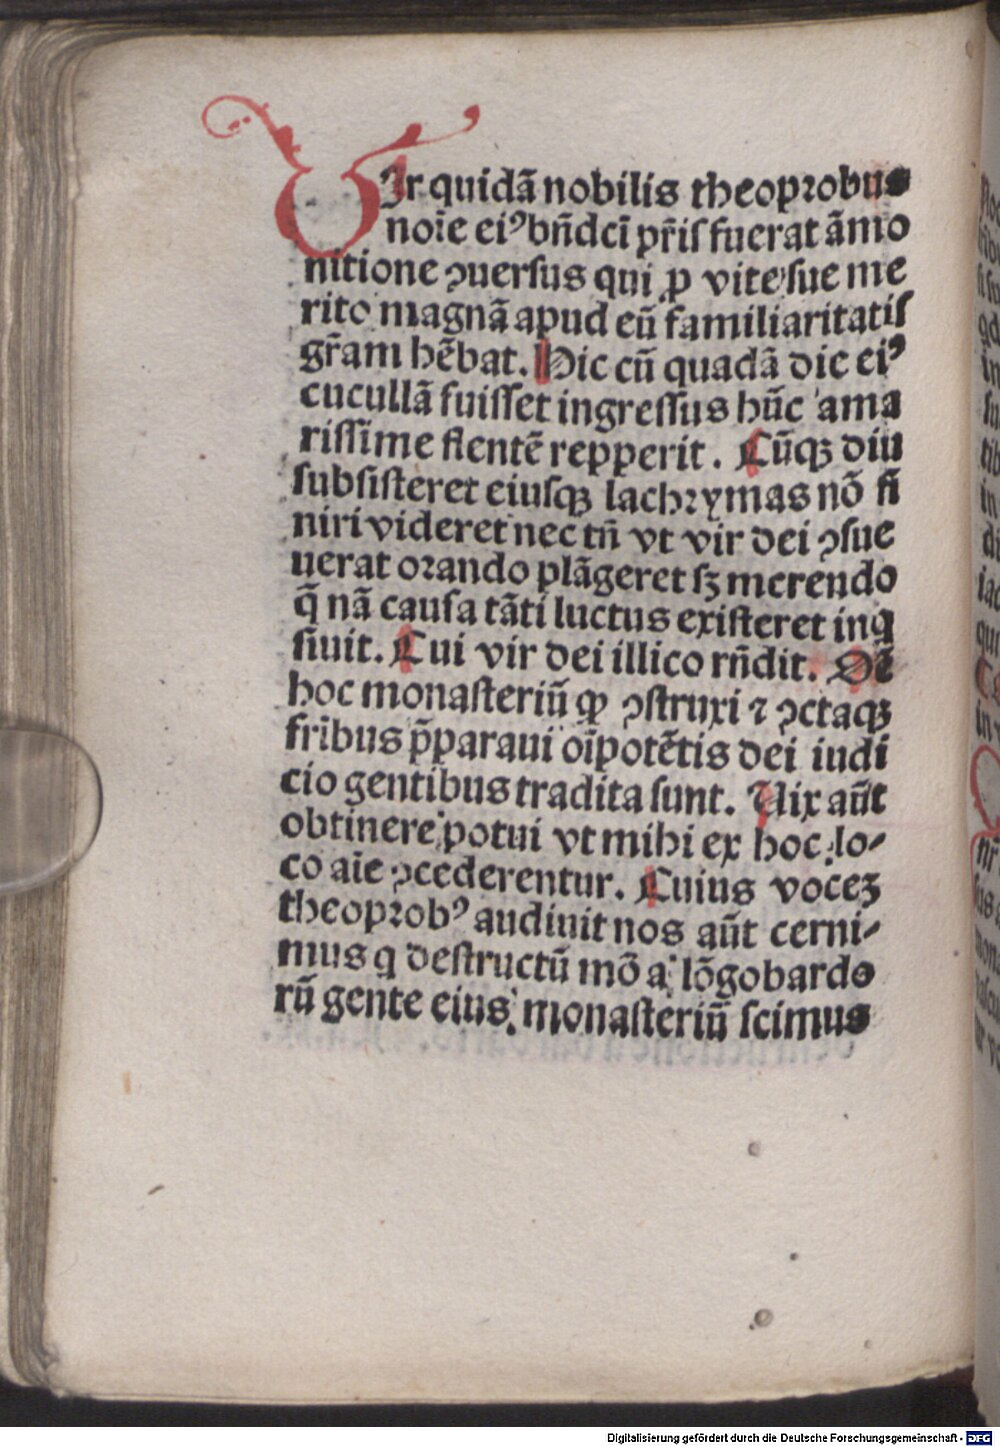 VIr quidā nobilis theoprobus
noīe eiꝰ bn̄dcī pr̄is fuerat āmo
nitione ꝯuersus qui ꝓ vite sue me
rito magnā apud eū familiaritatis
gr̄am hēbat. Hic cū quadā die eiꝰ
cucullā fuisset ingressus hūc ama
rissime flentē repperit. Cūqꝫ diu
subsisteret eiusqꝫ lachrymas nō fi
niri videret nec tn̄ vt vir dei ꝯsue
uerat orando plāgeret sꝫ merendo
q̄ nā causa tāti luctus existeret inq
siuit. Cui vir dei illico rn̄dit. Oē
hoc monasteriū qꝫ ꝯstruxi ⁊ ꝯctaqꝫ
fribus p̄paraui oīpotētis dei iudi
cio gentibus tradita sunt. Uix aūt
obtinere potui vt mihi ex hoc lo-
co aīe ꝯcederentur. Cuius voceꝫ
theoprobꝰ audiuit nos aūt cerni-
mus q destructū mō a lōgobardo
rū gente eius monasteriū scimus
Digitalisierung gefördert durch die Deutsche Forschungsgemeinschaft - DFG